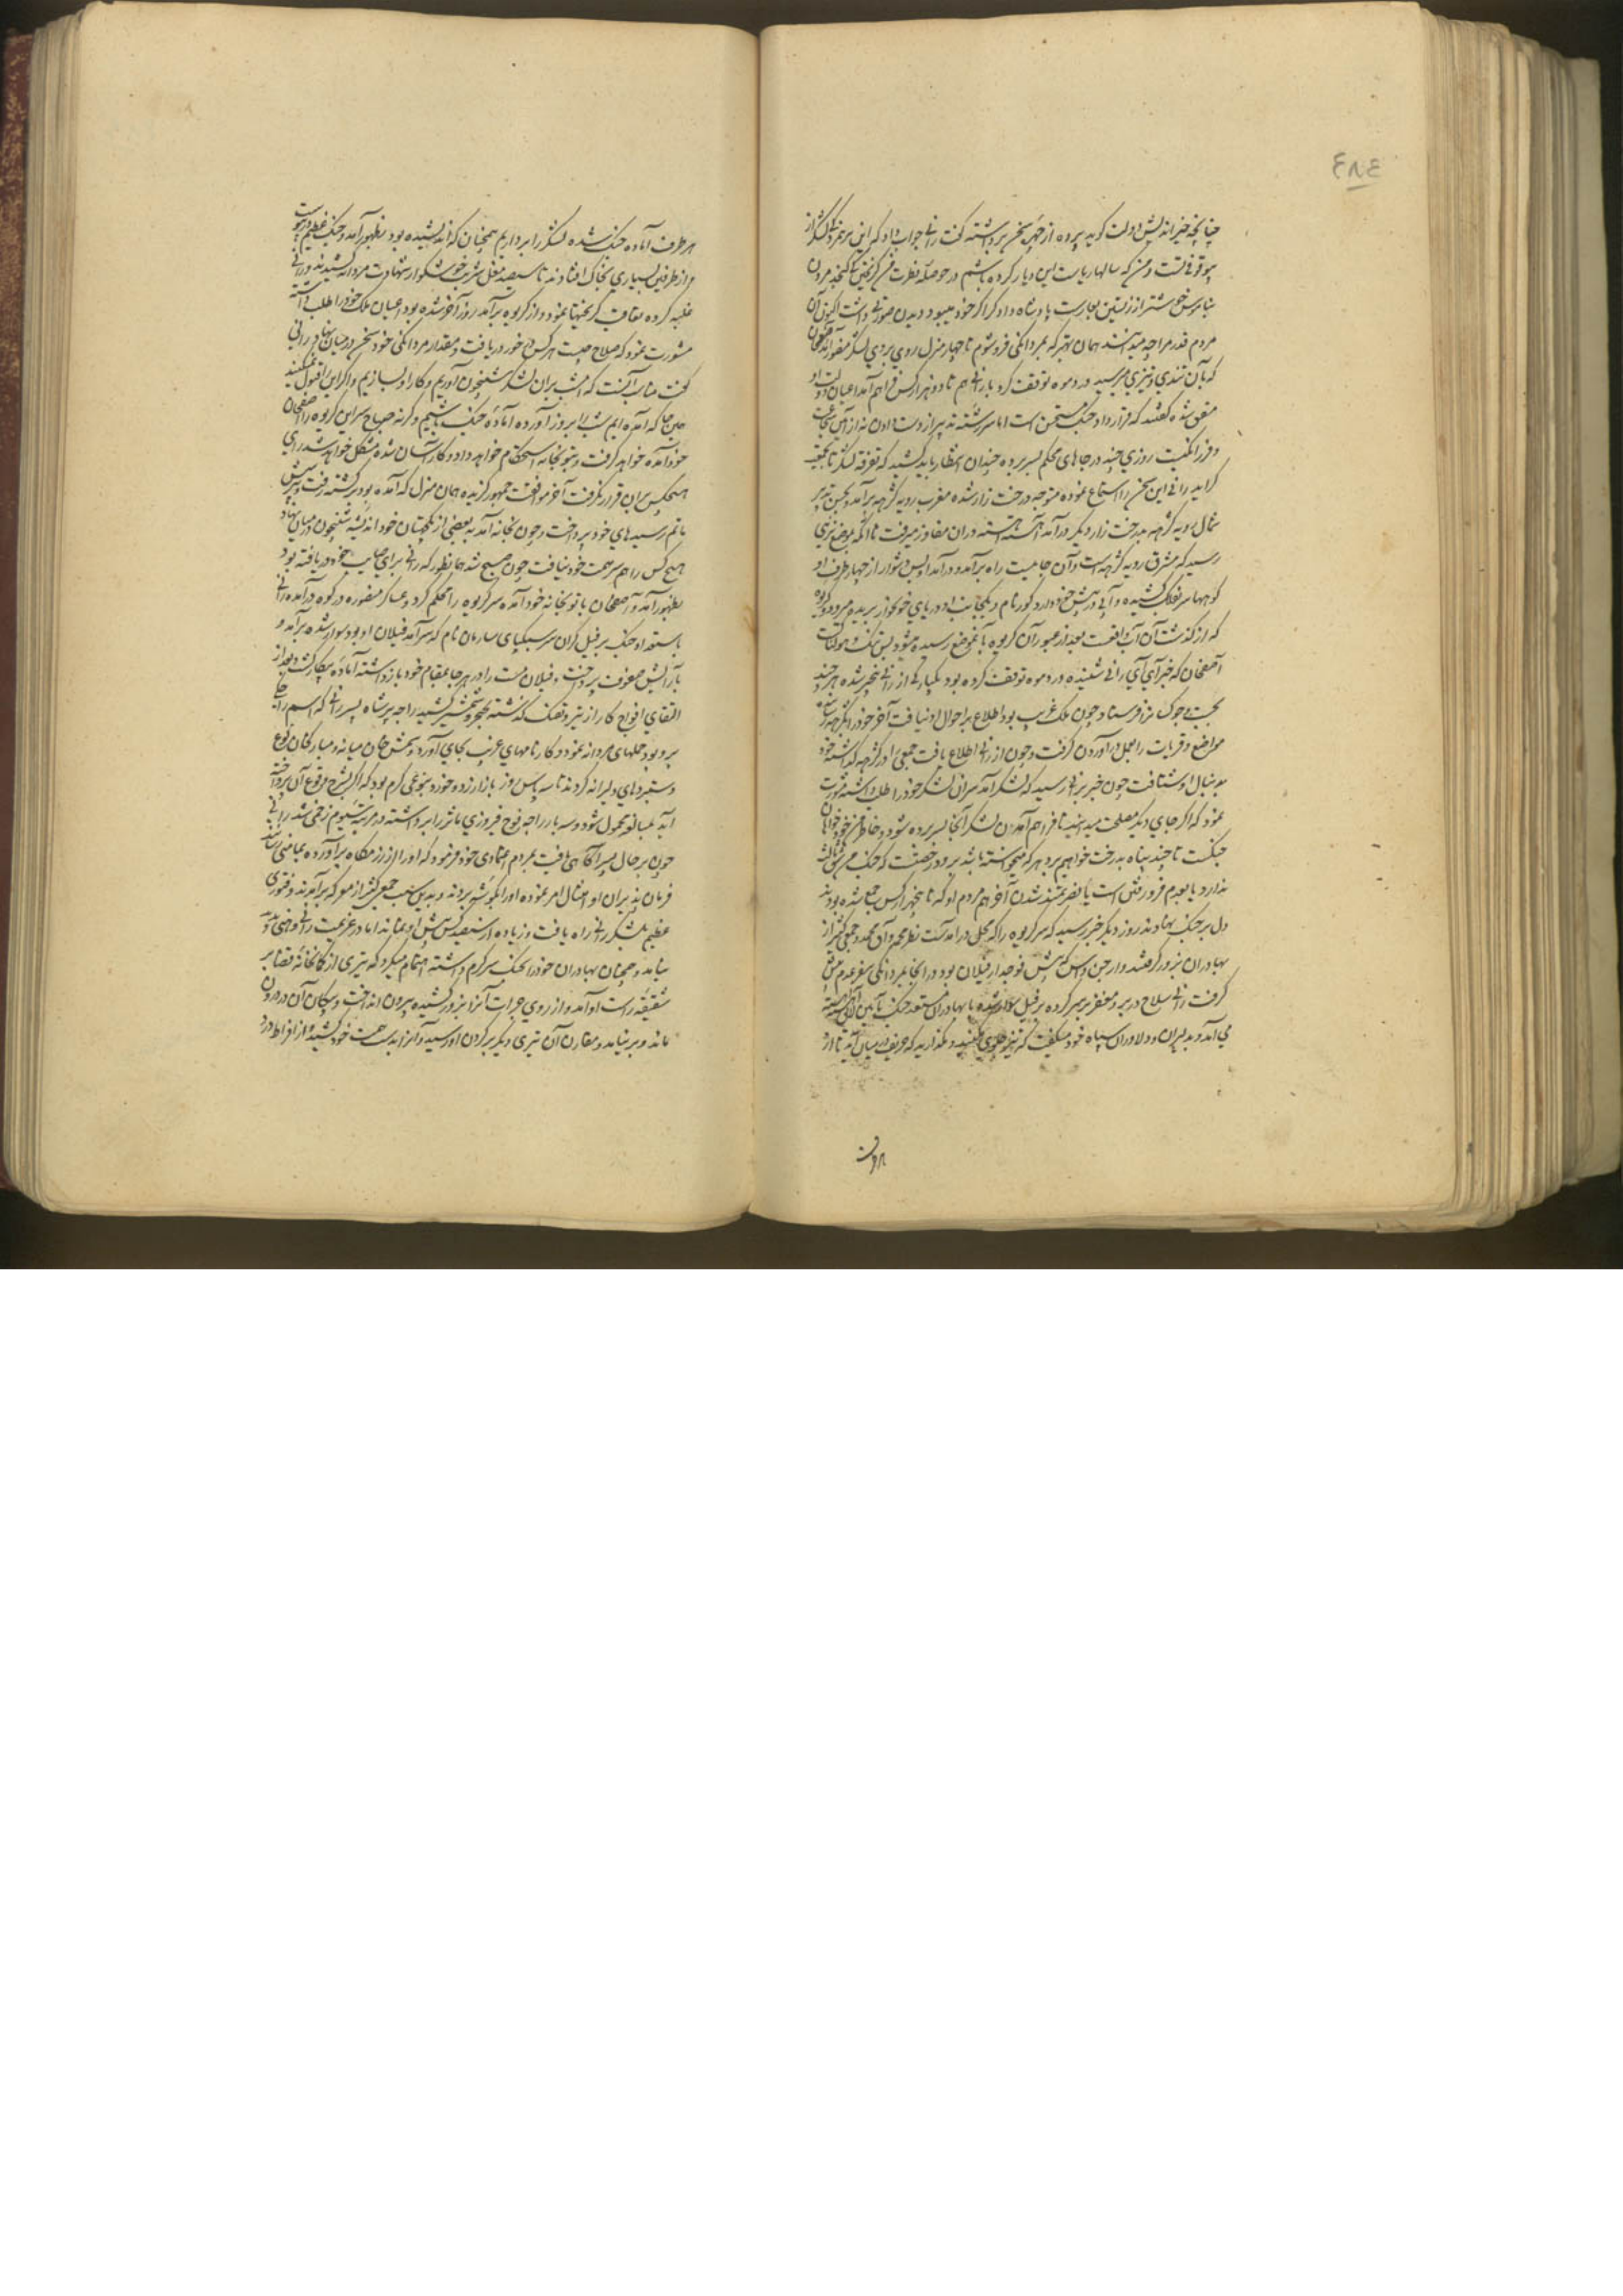 ٤٨٤
چنانچه خیراندیش دولت گوید پرده از چهره سخن برداشته گفت رانی جواب داد که این
بیوقوفی تست و من که سالها ریاست این دیار کرده باشم در حوصله فطرت من گریختن کی گنجد مردن
بناموس خوشتر از زیستن بعارست پادشاه دادگر اگر خود میبود دیدن صورتی داشت اکنون آن
مردم قدر مرا چه میدانند همان بهتر که بمردانگی فرو شوم تا چهار منزل روی بروی لشکر منصور آمد آصفخان
که بآن تندی و تیزی میرسید در دموه توقف کرد با رانی هم تا دو هزار کس فراهم آمد اعیان دولت او
متفق شده گفتند که قرارداد جنگ مستحسن است اما سررشته تدبیر از دست دادن نه از آئین شجاعت
و فرزانگیست روزی چند در جاهای محکم بسر برده چندان انتظار باید کشید که تفرقه لشکر ما بجمعیت
گراید رانی این سخن را استماع نموده متوجه درخت زار شده مغرب رویه گرهه برآمد و بحسن تدبیر
شمال رویه گرهه بدرخت زار دیگر درآمد آهسته آهسته دران مفاوز میرفت تا آنکه بموضع نرهی
رسید که مشرق رویه گرهه است و آن جاییست راه برآمد و درآمد او بس دشوار از چهار طرف او
کوهها سر بفلک کشیده و آبی در پیش خود دارد گور نام و یکجانب او دریای خونخوار نربده میرود و گریوه
که از گذشت آن آب واقعست بعد از عبور آن گریوه بآنموضع رسیده میشود بس تنگ و هولناک
آصفخان که خبر آبی رانی شنیده در دموه توقف کرده بود یکبارگی از رانی بیخبر شده هرچند
بجست و جوی کس فرستاد چون ملک غریب بود اطلاع بر احوال او نیافت آخر خود را بگرهه رسانیده
مواضع و قریات را بعمل درآوردن گرفت و چون از رانی اطلاع یافت جمعی را در گرهه گذاشته خود
بدنبال او شتافت چون خبر برانی رسید که لشکر آمد سران لشکر خود را طلب داشته مشورت
نمود که اگر جای دیگر مصلحت میدانید تا فراهم آمدن لشکر آنجا بسر برده شود و خاطر من خود خواهان
جنگست تا چند پناه بدرخت خواهیم برد هر که میخواسته باشد برود رخصت که جنگ من شق ثالث
ندارد یا بعدم فرو رفتن است یا نصرتمند شدن آخر هم مردم او که تا پنجهزار کس جمع شده بودند
دل بر جنگ نهادند روز دیگر خبر رسید که سر گریوه را که محل درآمدست نظر محمد و آق محمد و جمعی کثیر از
بهادران بزور گرفتند و ارجن داس بیس که فوجدار فیلان بود در آنجا بمردانگی بسفر عدم
گرفت رانی سلاح در بر و مغفر بر سر کرده بر فیل سوار شده با بهادران مستعد جنگ بآئین
می آمد و بدلیران و دلاوران سپاه خود میگفت که تیز جلوی مکنید و بگذارید که حریف در میان آید تا از
هر طرف
هر طرف آماده جنگ شده لشکر را برداریم همچنان که اندیشیده بود بظهور آمد و جنگ عظیم در پیوست
و از طرفین بسیاری بخاک افتادند تا سیصد مغل شربت خوشگوار شهادت مردانه کشیدند و رانی
غلبه کرده تعاقب گریختها نمود و از گریوه برآمد روز آخر شده بود اعیان ملک خود را طلب داشته
مشورت نمود که صلاح چیست هر کس در خور دریافت و مقدار مردانگی خود سخن در میان نهاد رانی
گفت مناسب آنست که امشب بران لشکر شبخون آوریم و کار او بسازیم و اگر این قبول نمیکنید
همین جا که آمده ایم شب را بروز آورده آماده جنگ باشیم و گرنه صباح سر این گریوه را آصفخان
خود آمده خواهد گرفت و بتوپخانه استحکام خواهد داد و کار آسان شده مشکل خواهد شد رای
هیچکس بران قرار نگرفت آخر موافقت جمهور گزیده همان منزل که آمده بود برگشته رفت و بپرسش
ماتم رسیدهای خود پرداخت و چون بخانه آمد به بعضی از یکجهتان خود اندیشه شبخون در میان نهاد
هیچ کس را هم سر همت خود نیافت چون صبح شد همانطور که رانی برای صایب خود دریافته بود
بظهور آمد و آصفخان با توپخانه خود آمده سر گریوه را محکم کرد و عساکر منصوره در کوه درآمدند رانی
باستعداد جنگ بر فیل گران سر سبک پای سارمان نام که سرآمد فیلان او بود سوار شده برآمد و
بآرایش صفوف پرداخت و فیلان مست را در هر جا بمقام خود بازداشته آماده پیکار گشت و بعد از
التقای افواج کار از تیر و تفنگ گذشته بخنجر و شمشیر کشید راجه بیرشاه پسر رانی که اسم راجگی
برو بود حملهای مردانه نمود و کارنامهای غریب بجای آورد و شمس خان میانه و مبارک خان نوع
دستبردهای دلیرانه کردند تا سه پاس روز بازار زد و خورد بنوعی گرم بود که اگر بشرح وقوع آن پرداخته
آید بمبالغه محمول شود و سه بار راجه فوج فیروزی ماثر را برداشته در مرتبه سیوم زخمی شد رانی
چون بر حال پسر آگاهی یافت بمردم اعتمادی خود فرمود که او را از رزمگاه برآورده بمامنی رسانند
فرمان پذیران او امتثال امر نموده او را بگوشه بردند و بدین سبب جمعی کثیر از معرکه برآمدند و فتوری
عظیم بلشکر رانی راه یافت و زیاده از سیصد کس پیش او نماند اما در عزیمت رانی وهنی پدید
نیامد و همچنان بهادران خود را بجنگ سرگرم داشته اهتمام میکرد که تیری از کمانخانه قضا بر
شقیقه راست او آمد و از روی جرات آنرا بزور کشیده بیرون انداخت و پیکان آن درون
ماند و برنیامد و مقارن آن تیری دیگر بر گردن او رسید و آنرا بدست همت خود کشید از افراط درد